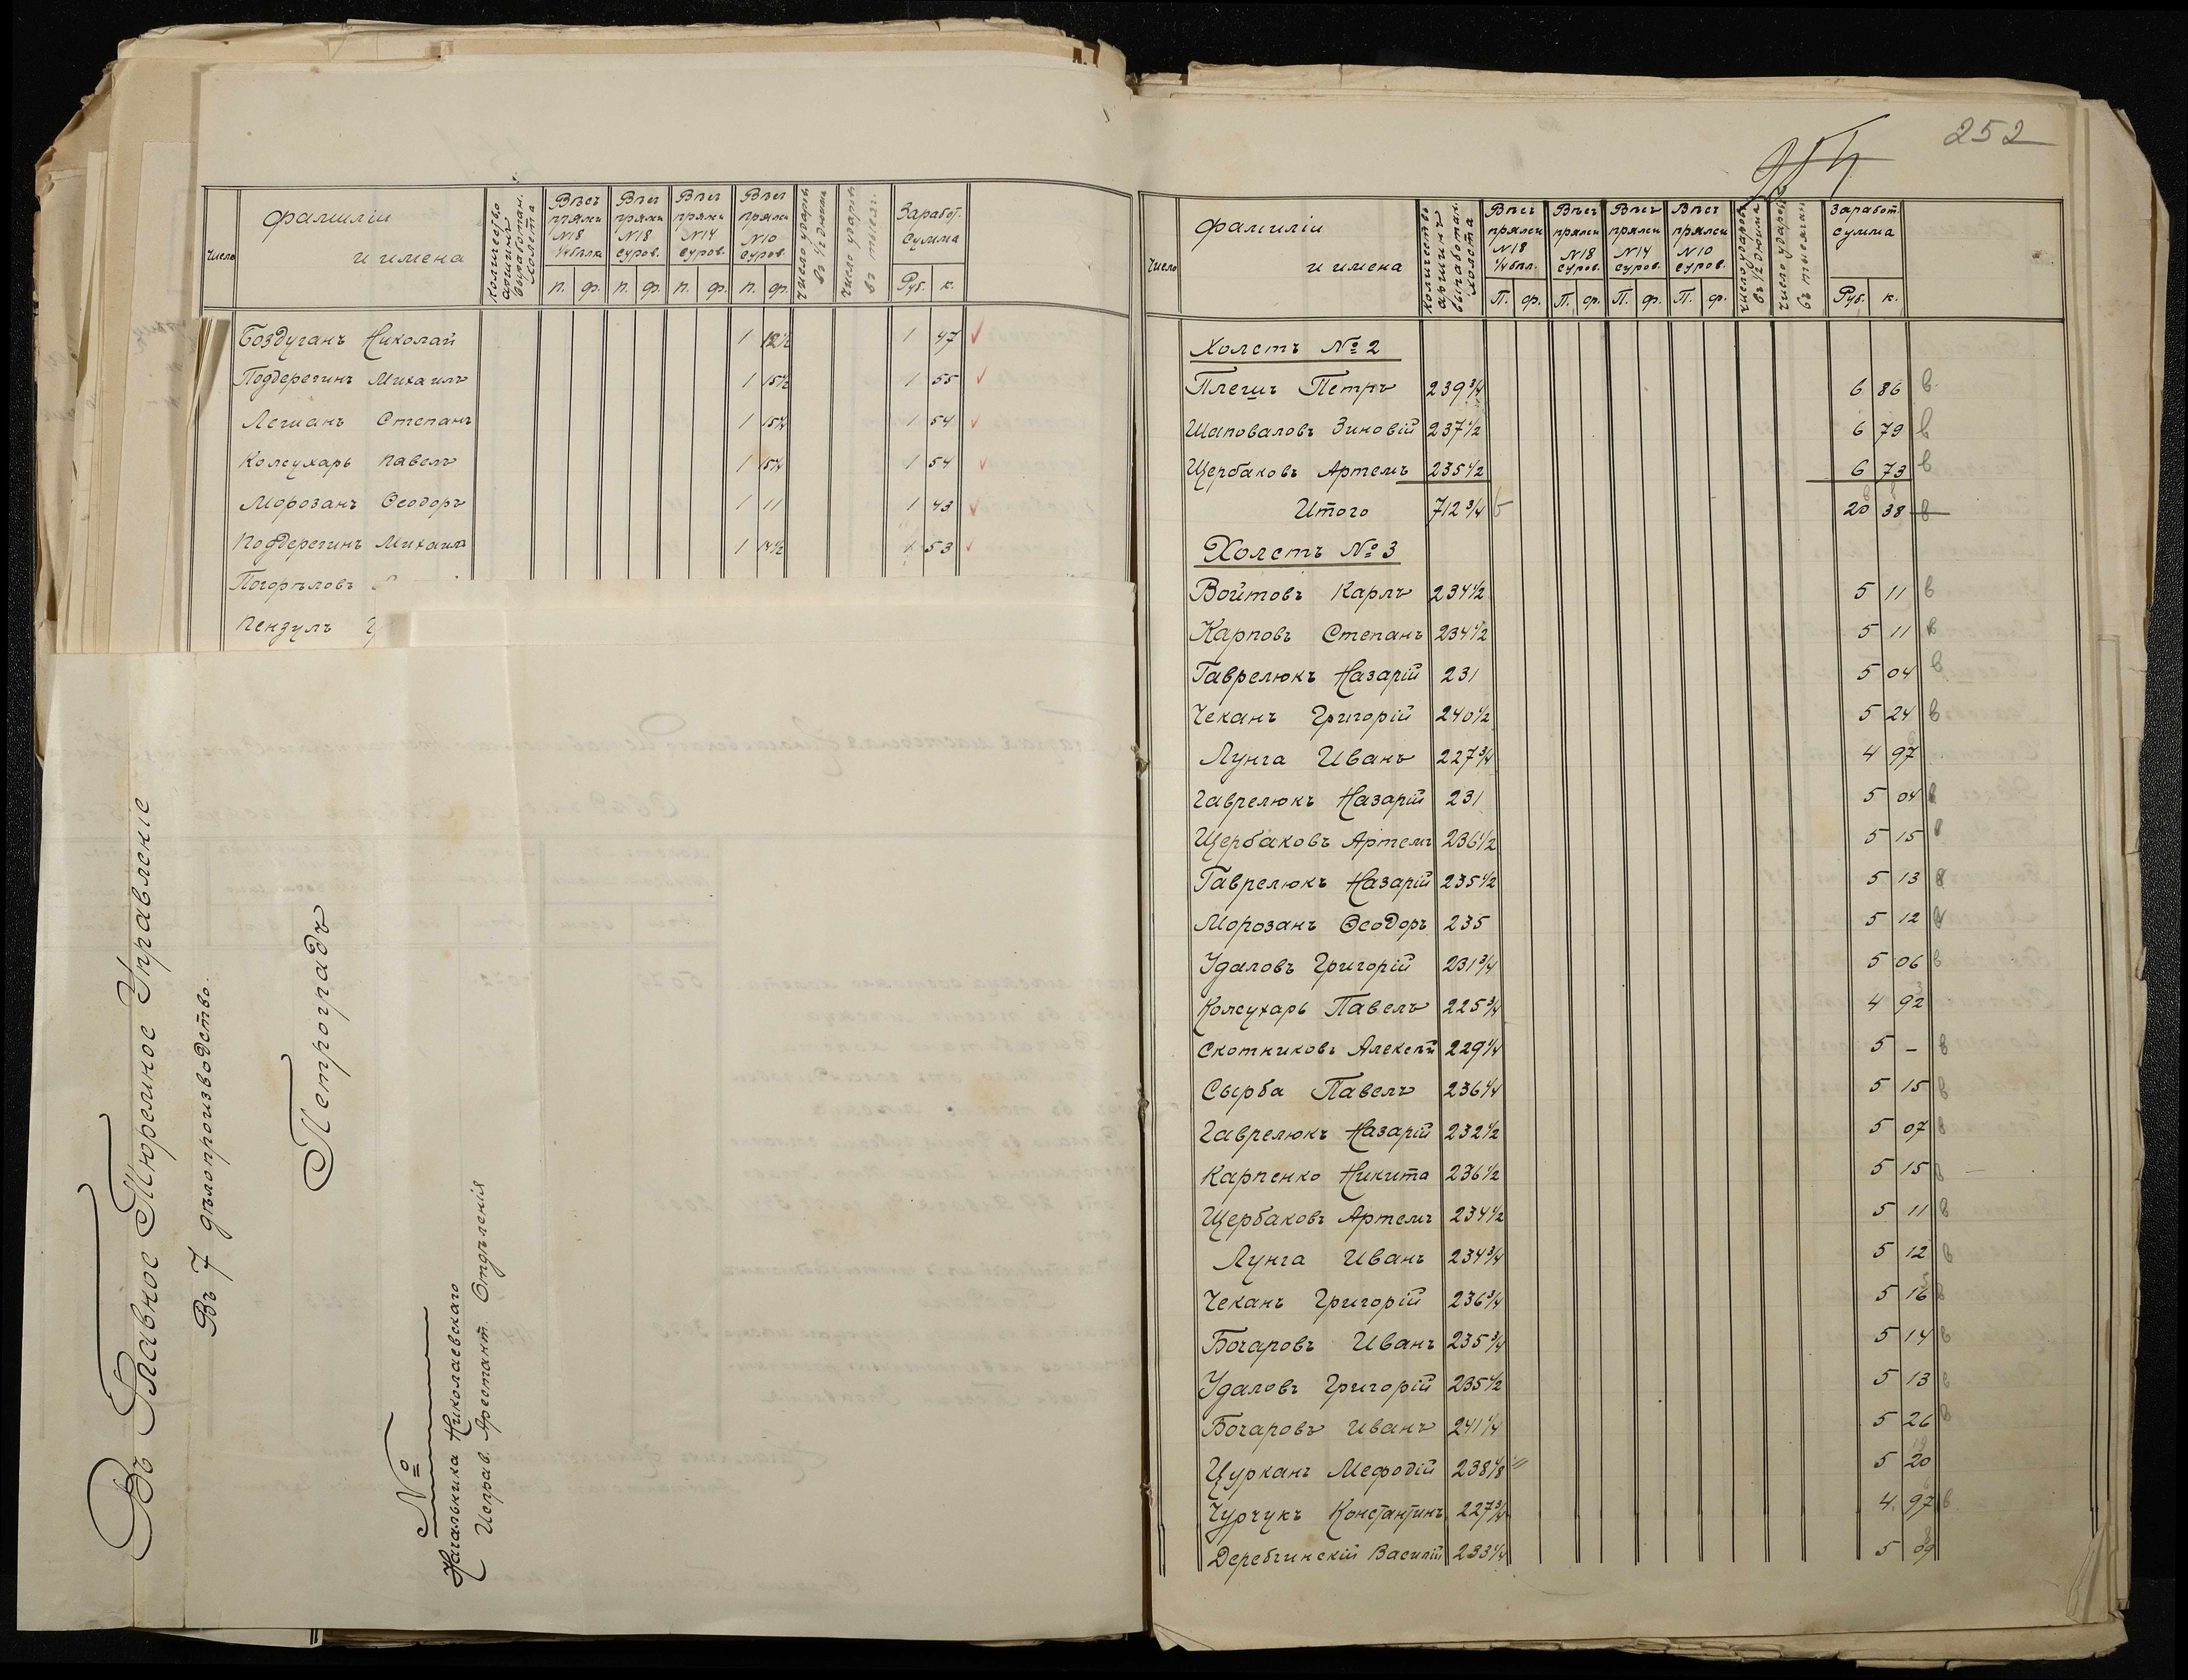 Число
фамиліи
и имена
Количество аршинъ выработан. холста
Вѣсъ пряжи N18 1/4 бѣлк
Вѣсъ пряжи N18 суров.
Вѣсъ пряжи N14 суров.
Вѣсъ пряжи N10 суров.
число ударовъ въ 1/2 дюйма
число ударовъ въ тысяч.
Заработ. сумма
п. ф. п. ф. п. ф. п. ф. Руб. к.
Боздуганъ Николай 1 12½ 1 47
Поддерегинъ Михаилъ 1 15½ 1 55
Легианъ Степанъ 1 15¼ 1 54
Кожухарь Павелъ 1 15¼ 1 54
Морозанъ Ѳеодоръ 1 11 1 43
Поддерегинъ Михаил 1 14½ 1 53
Погорѣловъ
Пензулъ
Въ Главное Тюремное Управленіе
Въ 7 дѣлопроизводство.
Петроградъ
№
Начальника Николаевскаго
Исправ. Арестант. Отдѣленія
252
Число
фамиліи
и имена
количество аршинъ выработан. холста
Вѣсъ пряжи N18 1/4 бѣл.
Вѣсъ пряжи N18 суров.
Вѣсъ пряжи N14 суров.
Вѣсъ пряжи N10 суров.
число ударовъ въ 1/2 дюйма
число ударовъ въ тысячан.
Заработ. сумма
П. ф. П. ф. П. ф. П. ф. Руб. к.
Холстъ № 2
Плешъ Петръ 239¾ 6 86 в
Шаповаловъ Зиновій 237½ 6 79 в
Щербаковъ Артемъ 235½ 6 73 в
Итого 712¾ 20 38 в
Холстъ № 3
Войтовъ Карлъ 234½ 5 11 в
Карповъ Степанъ 234½ 5 11 в
Гаврелюкъ Назарій 231 5 04 в
Чеканъ Григорій 240½ 5 24 в
Лунга Иванъ 227¾ 4 97
Гаврелюкъ Назарій 231 5 04 в
Щербаковъ Артемъ 236½ 5 15 в
Гаврелюкъ Назарій 235½ 5 13 в
Морозанъ Ѳеодоръ 235 5 12 в
Удаловъ Григорій 231¾ 5 06 в
Кожухарь Павелъ 225¾ 4 92
Скотниковъ Алексѣй 229¼ 5 – в
Сырба Павелъ 236¼ 5 15 в
Гаврелюкъ Назарій 232½ 5 07 в
Карпенко Никита 236½ 5 15 в
Щербаковъ Артемъ 234½ 5 11 в
Лунга Иванъ 234¾ 5 12 в
Чеканъ Григорій 236¾ 5 16 в
Бочаровъ Иванъ 235¾ 5 14 в
Удаловъ Григорій 235½ 5 13 в
Бочаровъ Иванъ 241¼ 5 26 в
Цурканъ Мефодій 238⅛ 5 20
Чурчукъ Константинъ 227¾ 4 97 в
Деребчинскій Василій 233¼ 5 09